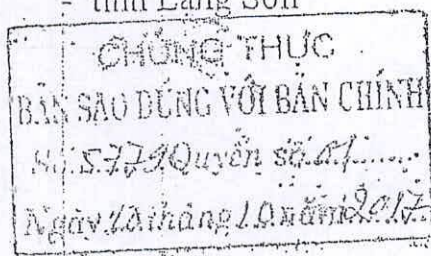 - tỉnh Lạng Sơn
CHỨNG THỰC
BẢN SAO ĐÚNG VỚI BẢN CHÍNH
Số 5779 Quyển số 01
Ngày 10 tháng 10 năm 2017